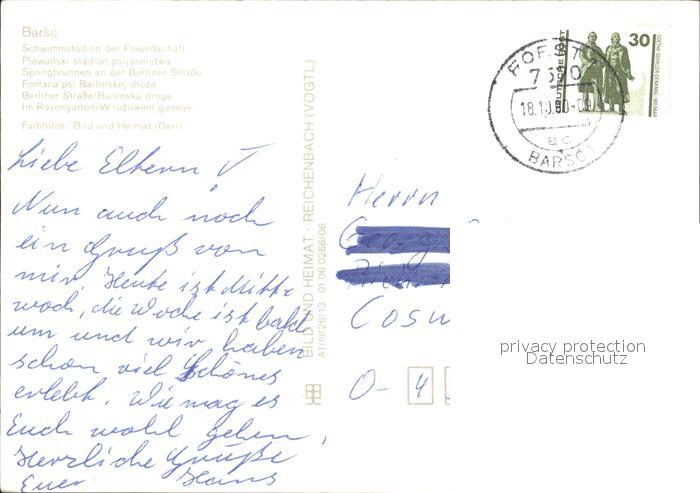 Baršć
Schwimmstadion der Freundschaft
Pływański stadion psijaśelstwa
Springbrunnen an der Berliner Straße
Fontana psi Barlinskej droze
Berliner Straße/Barlinska droga
Im Rosengarten/W rožowem gumnje
Farbfotos: Bild und Heimat (Darr)
Liebe Eltern
Nun auch noch
ein Gruß von
mir. Heute ist Mitt-
woch, die Woche ist bald
um und wir haben
schon viel Schönes
erlebt. Wie mag es
Euch wohl gehen,
Herzliche Grüße
Euer Hans
BILD UND HEIMAT · REICHENBACH (VOGTL)
A1/III/26/13 01 06 0266/06
DEUTSCHE POST
30
BARŠĆ 1
Herrn
Cosw
O- 4
privacy protection
Datenschutz